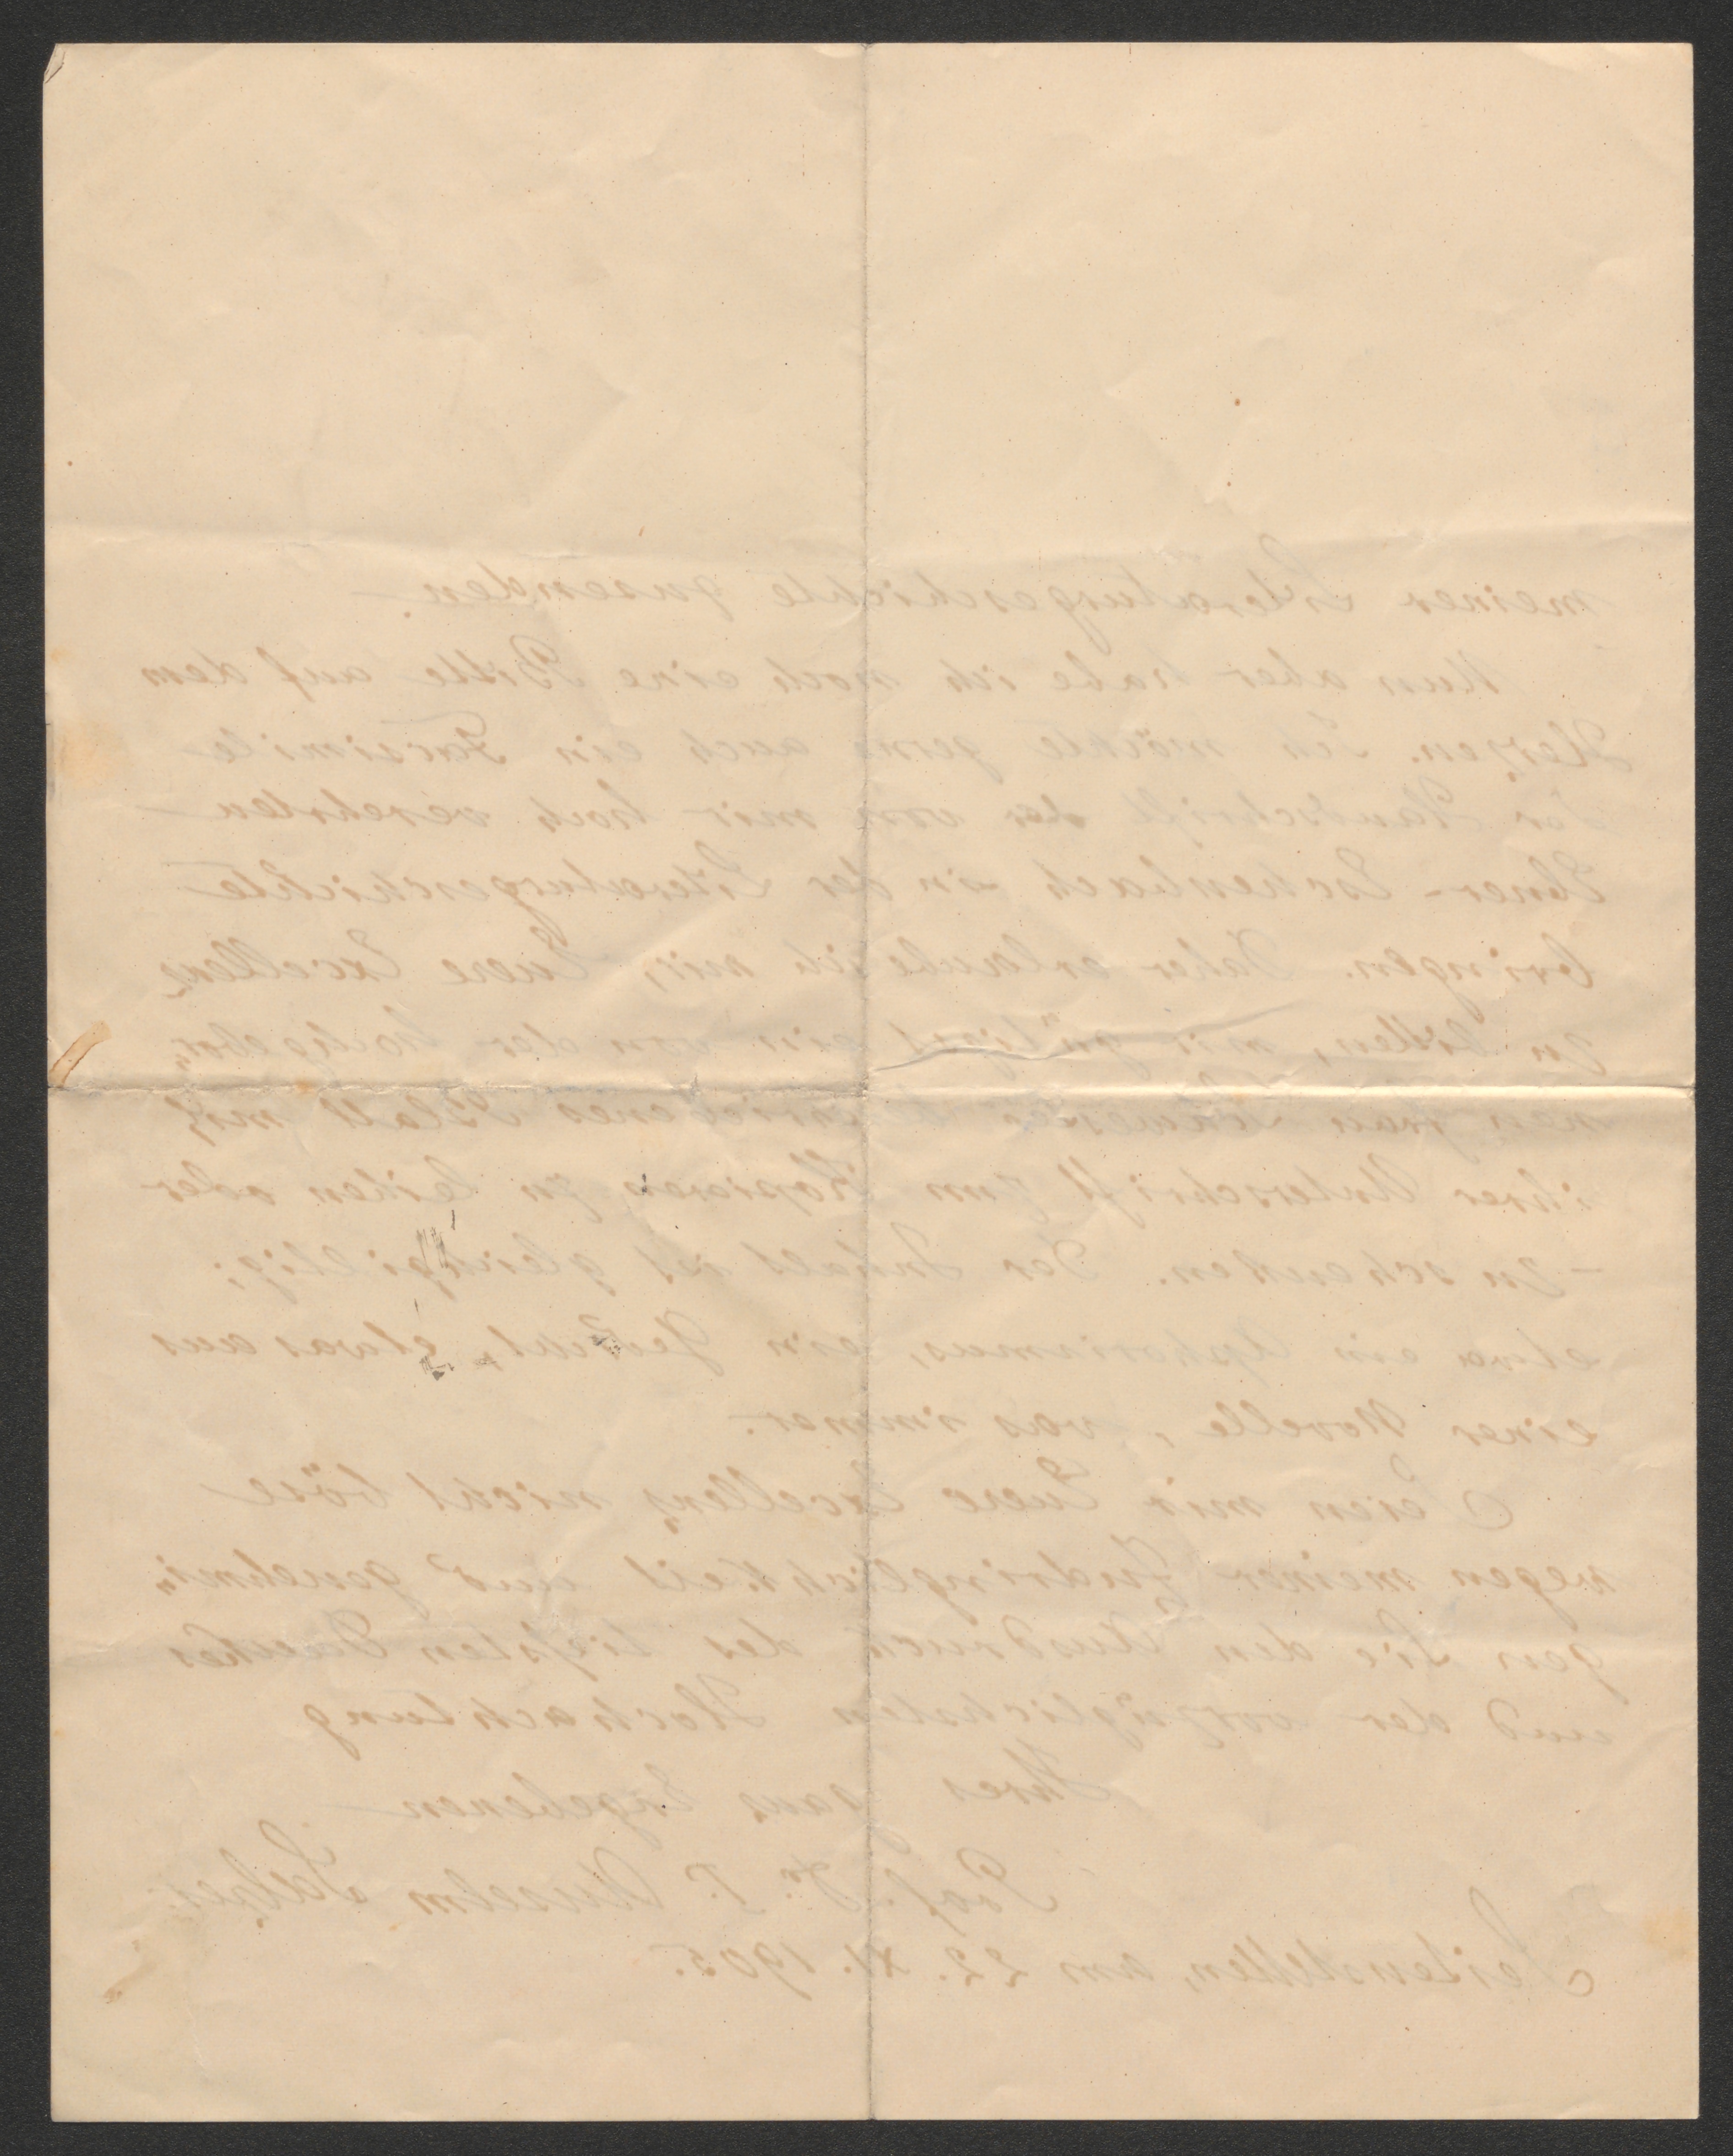 meiner Literaturgeschichte zusenden.
Nun aber habe ich noch eine Bitte auf dem
Herzen. Ich möchte gerne auch ein Facsimile
der Handschrift der von mir hoch verehrten
Ebner-Eschenbach in der Literaturgeschichte
bringen. Daher erlaube ich mir, Euere Excellenz
zu bitten, mir gütigst ein von der hochgebor-
nen Frau Schwester beschriebenes Blatt mit
ihrer Unterschrift zum Kopieren zu leihen oder
zu schenken. Der Inhalt ist gleichgiltig;
etwa ein Aphorismus, ein Gedicht, etwas aus
einer Novelle, was immer.
Seien mir Euere Excellenz nicht böse
wegen meiner Zudringlichkeit und genehmi-
gen Sie den Ausdruck des tiefsten Dankes
und der vorzüglichsten Hochachtung
Ihres ganz Ergebenen
Prof. Dr. P. Anselm Salzer.
Seitenstetten, am 22. XI. 1905.